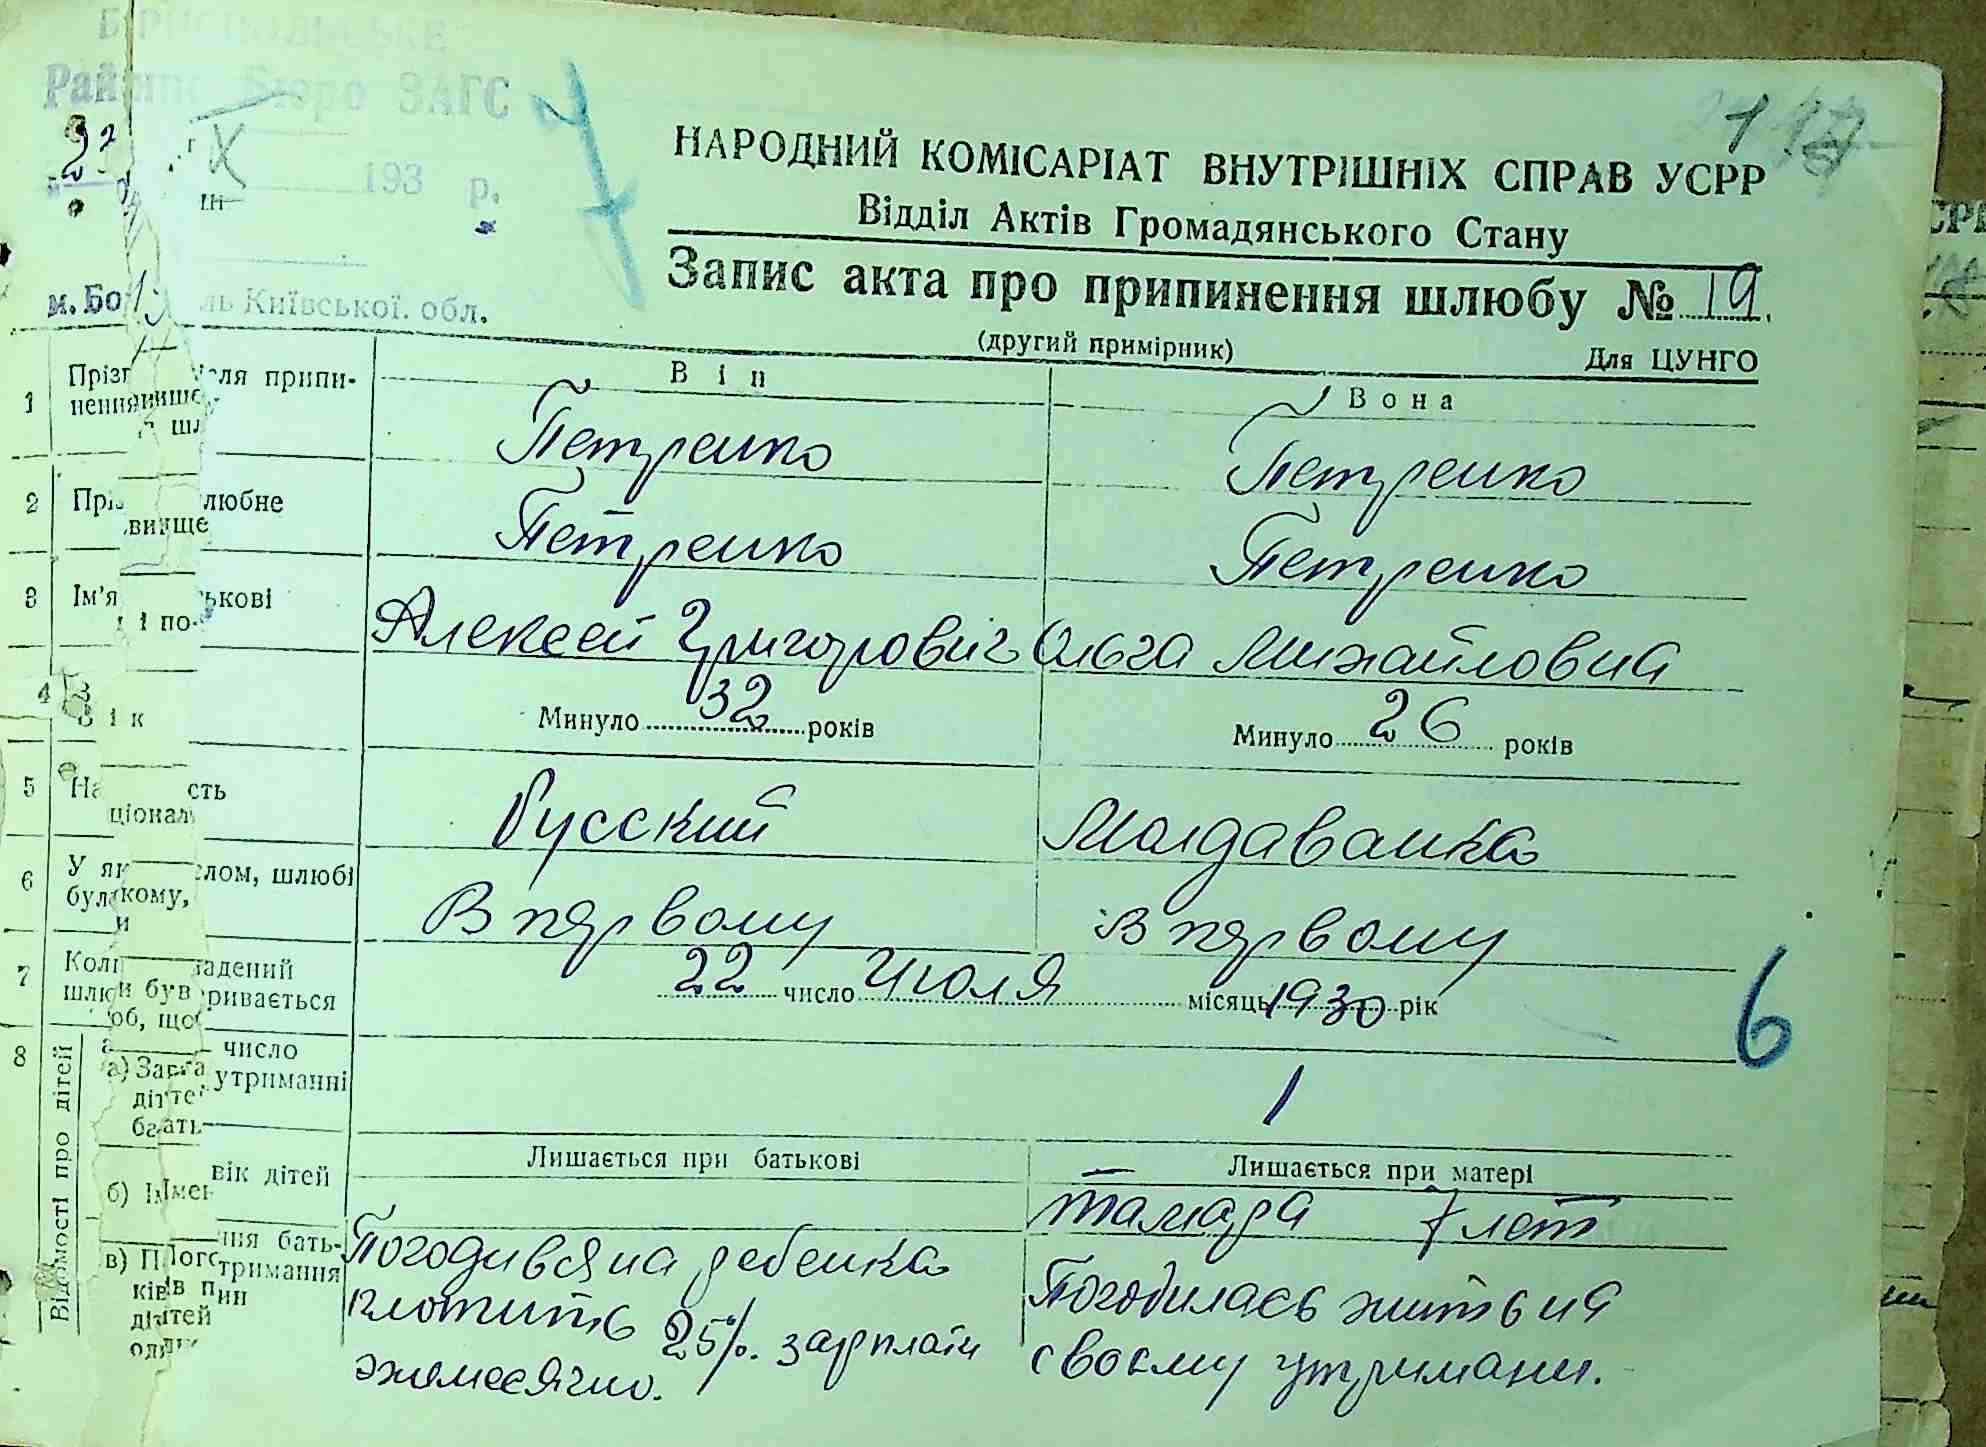 БОРИСПОЛЬСКЕ
Бюро ЗАГС
X
193 р.
м. Бо ль Київської. обл.
7
НАРОДНИЙ КОМІСАРІАТ ВНУТРІШНІХ СПРАВ УСРР
Відділ Актів Громадянського Стану
Запис акта про припинення шлюбу № 19.
(другий примірник)
Для ЦУНГО
Він
Вона
1
припи-
нення
Петренко
Петренко
2
любне
вище
Петренко
Петренко
3 Ім'я ькові
і по-
Алексей Григорович
Ольга Михайловна
4
Вік
Минуло 32 років
Минуло 26 років
5
ість
Русский
Молдаванка
6
У як лом, шлюбі
кому,
В первому
В первому
7
Коли ладений
був ривається
22 число Июля місяць 1930 рік
6
8
Відомості про дітей
число
утриманні
1
Лишається при батькові
Лишається при матері
б) Імен вік дітей
Тамара 7 лет
в) ння бать-
ків тримання
дітей
Погодився на ребенка
плотить 25%. зарплати
эжемесячно.
Погодилась жить на
своєму утримани.